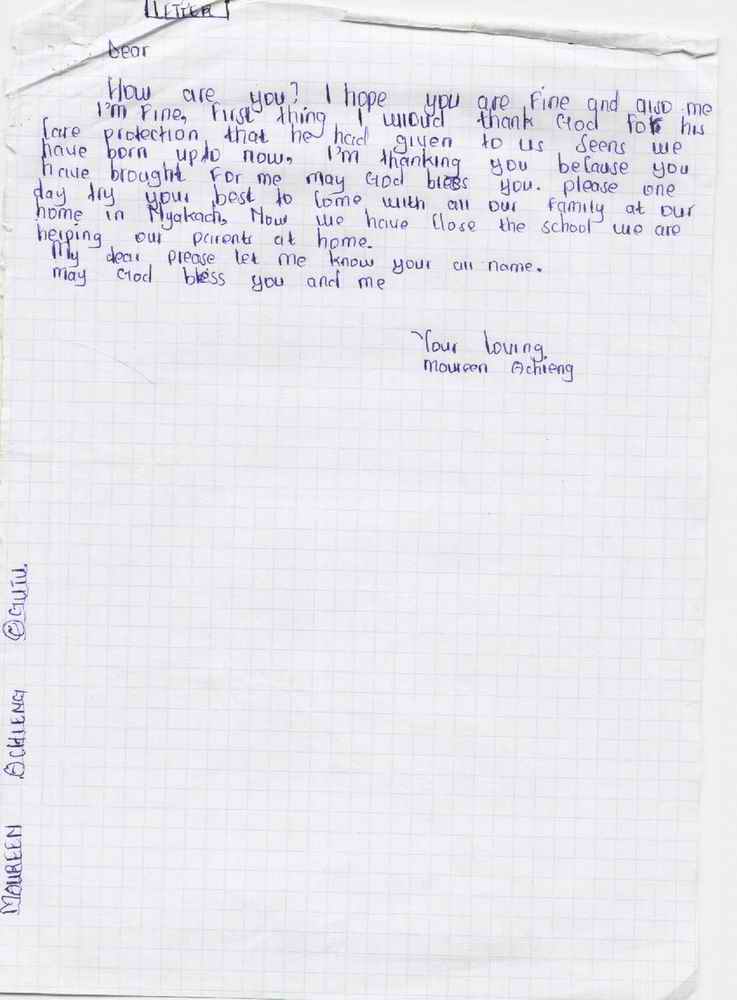 LETTER
Dear
How are you? I hope you are Fine and also me
I'm Fine, First thing I would thank God For his
Care protection that he had given to us Seens we
have born upto now, I'm thanking you because you
have brought For me may God bless you. please one
day try your best to Come with all our Family at our
home in Nyakach, Now we have Close the school we are
helping our parents at home.
My dear please let me know your all name.
may God bless you and me
Your loving,
Maureen Achieng
MAUREEN ACHIENG